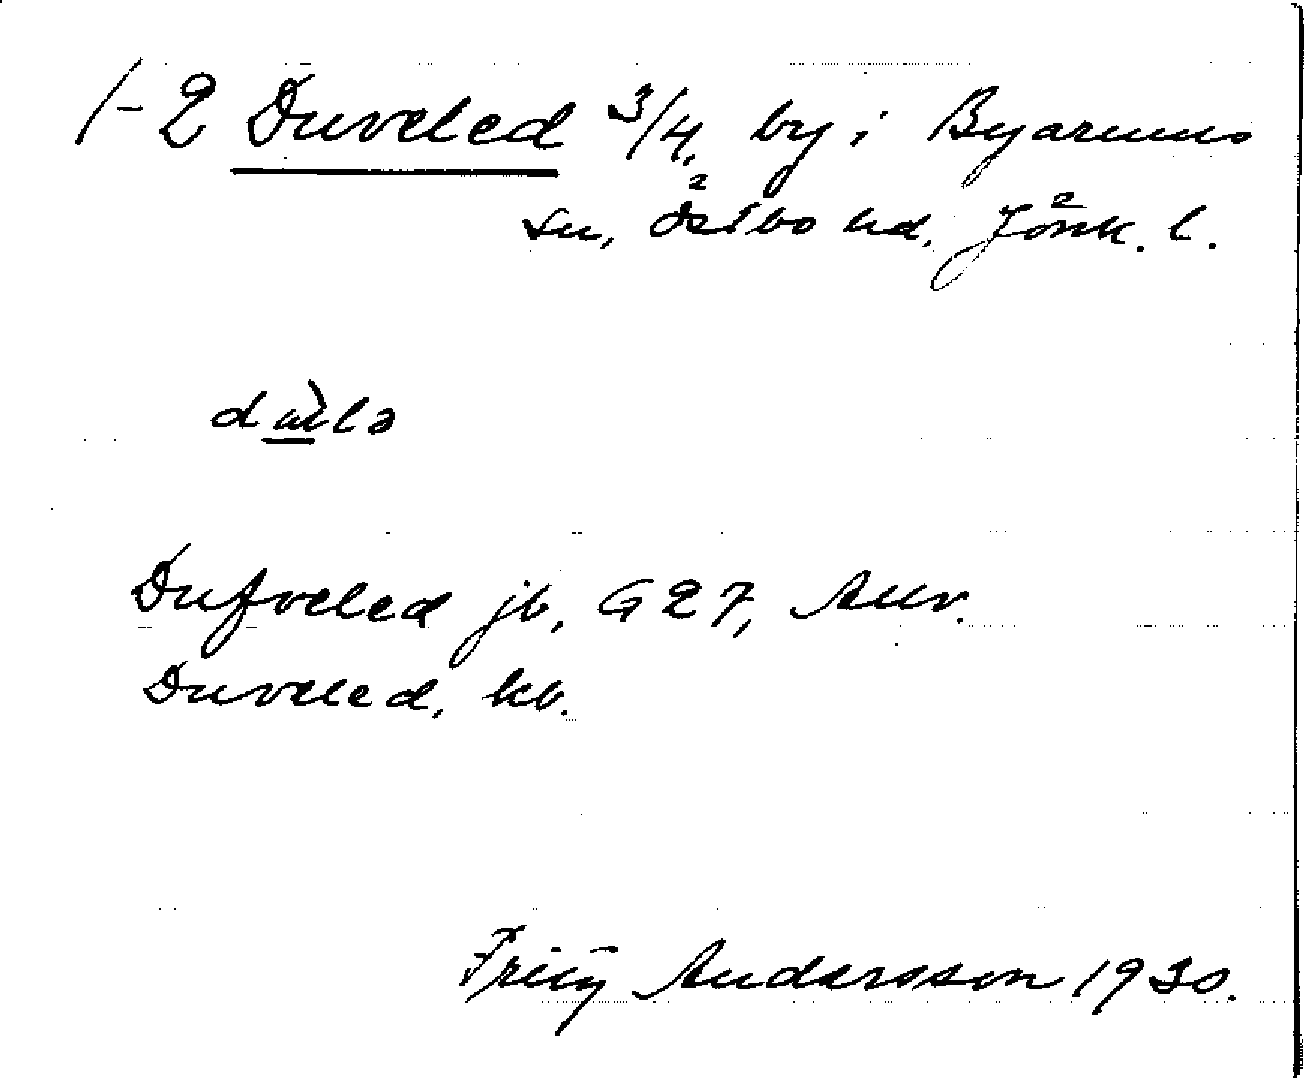 1-2 Duveled 3/4, by i Byarums
sn, Östbo hd, Jönk. l.
Dufveled jb, G 27, Auv.
Duveled, kb.
Andersson 1930.